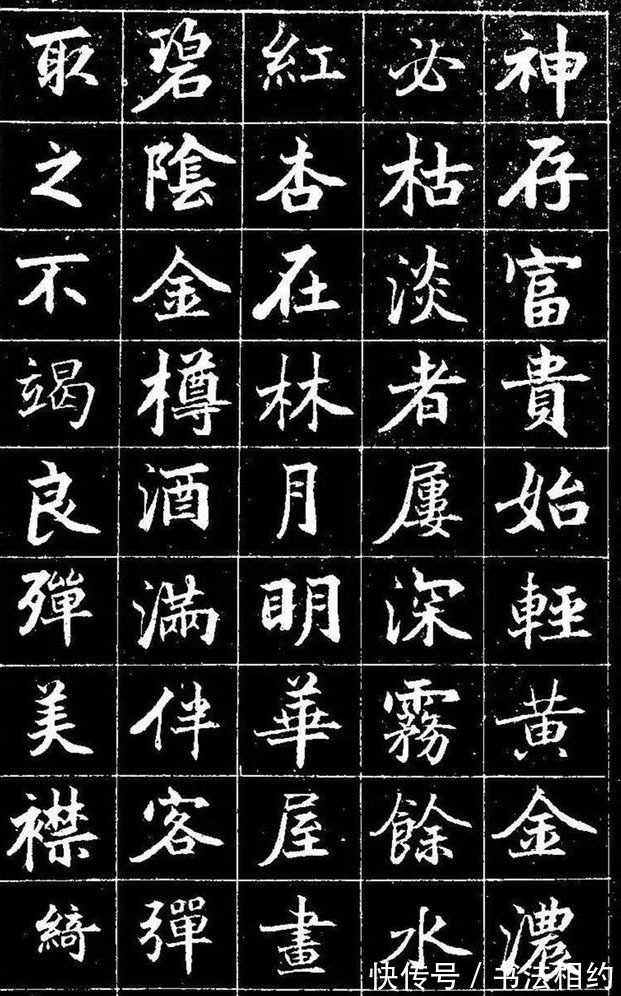 神存富貴始輕黃金濃
必枯淡者屢深霧餘水
紅杏在林月明華屋畫
碧陰金樽酒滿伴客彈
取之不竭良殫美襟綺
快传号 / 书法相约